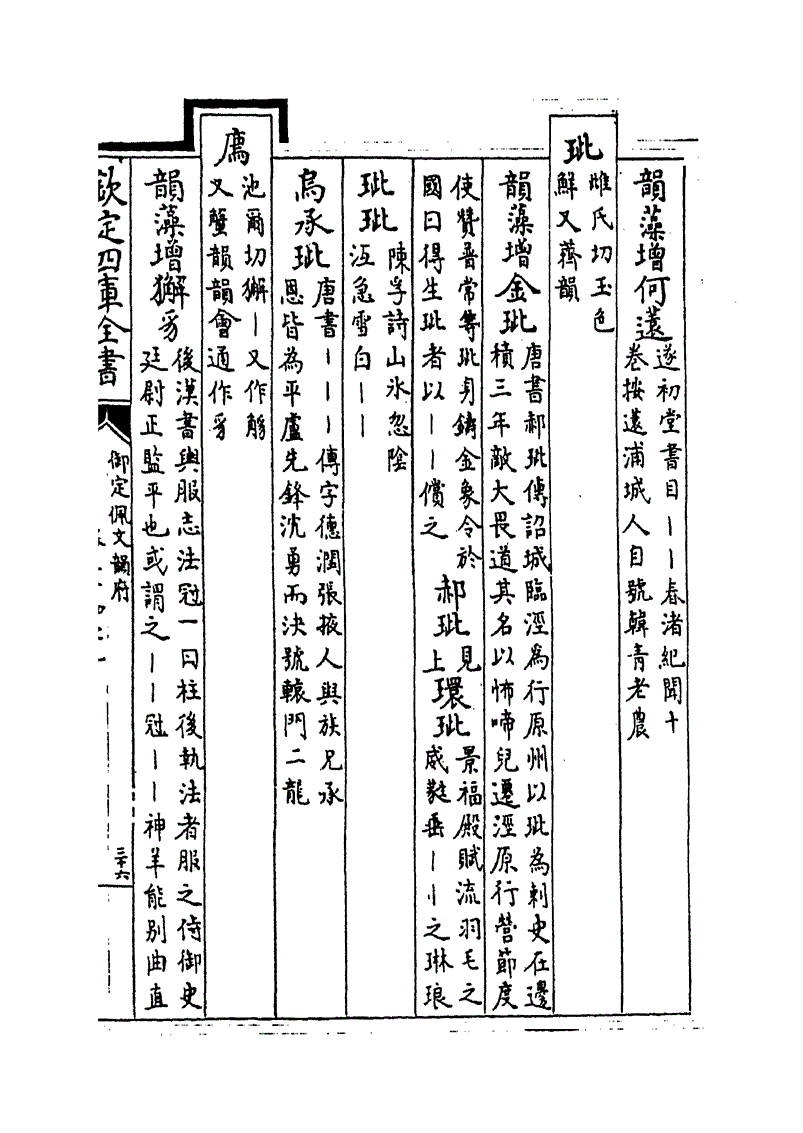 韻藻增何薳遂初堂書目丨丨春渚紀聞十
卷按薳浦城人自號韓青老農
玼雌氏切玉色
鮮又薺韻
韻藻增金玼唐書郝玼傳詔城臨涇為行原州以玼為刺史在邊
積三年敵大畏道其名以怖啼兒遷涇原行營節度
使贊普常等玼身鑄金象令於
國曰得生玼者以丨丨償之
郝玼見
上
環玼景福殿賦流羽毛之
威蕤垂丨丨之琳琅
玼玼陳孚詩山氷忽陰
沍急雪白丨丨
烏承玼唐書丨丨丨傳字德潤張掖人與族兄承
恩皆為平盧先鋒沈勇而決號轅門二龍
廌池爾切獬丨又作觟
又蟹韻韻會通作豸
韻藻增獬豸後漢書輿服志法冠一曰柱後執法者服之侍御史
廷尉正監平也或謂之丨丨冠丨丨神羊能别曲直
欽定四庫全書
御定佩文韻府
三十六